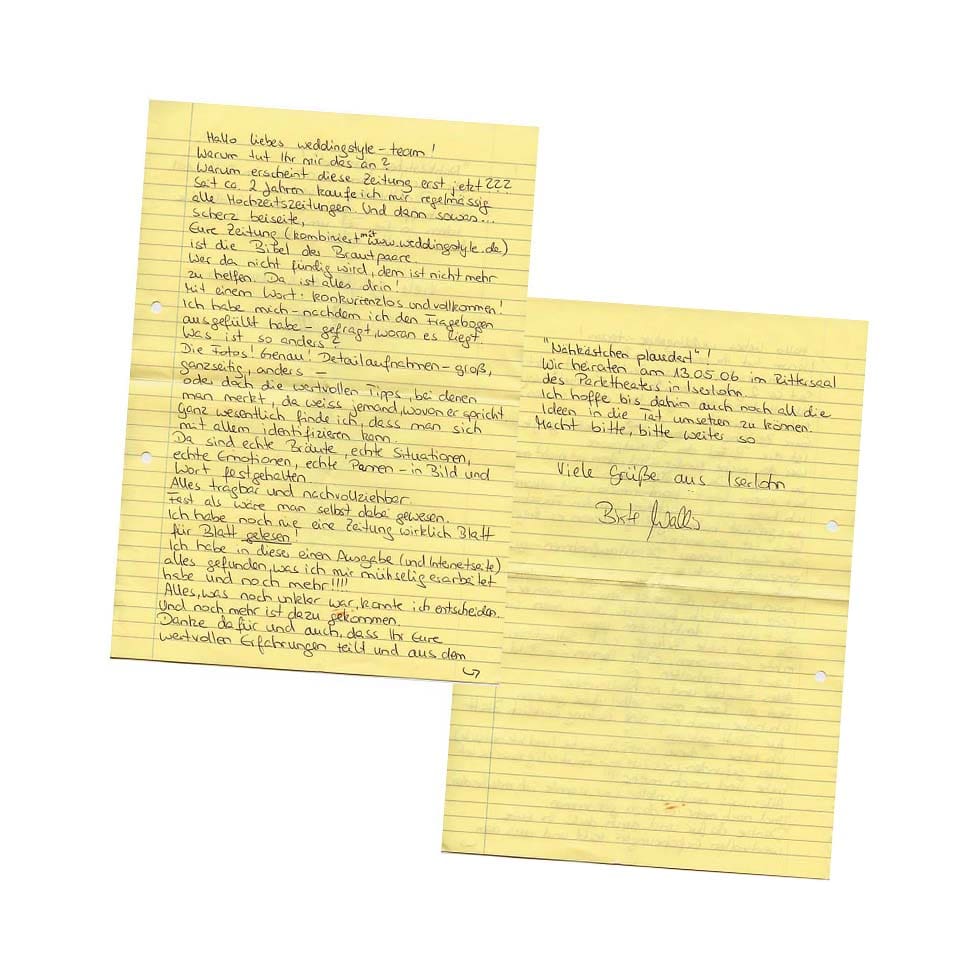 Hallo liebes weddingstyle-team!
Warum tut Ihr mir das an?
Warum erscheint diese Zeitung erst jetzt???
Seit ca. 2 Jahren kaufe ich mir regelmässig
alle Hochzeitszeitungen. Und dann sowas...
Scherz beiseite,
Eure Zeitung (kombiniert mit www.weddingstyle.de)
ist die Bibel des Brautpaare.
Wer da nicht fündig wird, dem ist nicht mehr
zu helfen. Da ist alles drin!
Mit einem Wort: konkurrenzlos und vollkommen!
Ich habe mich - nachdem ich den Fragebogen
ausgefüllt habe - gefragt, woran es liegt.
Was ist so anders?
Die Fotos! Genau! Detailaufnahmen - groß,
ganzseitig, anders -
oder doch die wertvollen Tipps, bei denen
man merkt, da weiss jemand, wovon er spricht
Ganz wesentlich finde ich, dass man sich
mit allem identifizieren kann.
Da sind echte Bräute, echte Situationen,
echte Emotionen, echte Pannen - in Bild und
Wort festgehalten.
Alles tragbar und nachvollziehbar.
Fast als wäre man selbst dabei gewesen.
Ich habe noch nie eine Zeitung wirklich Blatt
für Blatt gelesen!
Ich habe in dieser einen Ausgabe (und Internetseite)
alles gefunden, was ich mir mühselig erarbeitet
habe und noch mehr!!!!
Alles, was noch unklar war, konnte ich entscheiden.
Und noch mehr ist dazu gekommen.
Danke dafür und auch, dass Ihr Eure
wertvollen Erfahrungen teilt und aus dem
"Nähkästchen plaudert"!
Wir heiraten am 13.05.06 im Rittersaal
des Parktheaters in Iserlohn.
Ich hoffe bis dahin auch noch all die
Ideen in die Tat umsetzen zu können.
Macht bitte, bitte weiter so
Viele Grüße aus Iserlohn
Birte